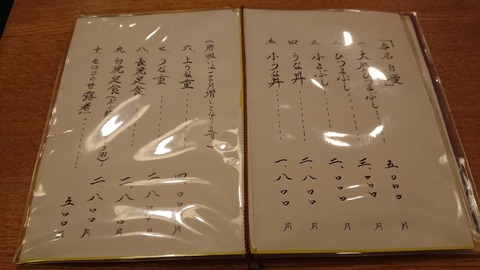 「当店自慢」
一 大盛ひつまぶし 五、〇〇〇円
二 ひつまぶし 三、〇〇〇円
三 小まぶし 二、〇〇〇円
四 うな丼 二、八〇〇円
五 小うな丼 一、八〇〇円
(肝吸いは100円増しとなります)
六 上うな重 四、〇〇〇円
七 うな重 二、八〇〇円
八 長焼定食 二、八〇〇円
九 白焼定食 二、八〇〇円
十 モロコの甘露煮 五〇〇円